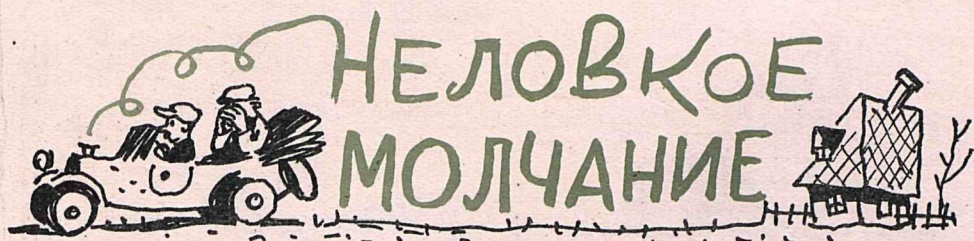 НЕЛОВКОЕ
МОЛЧАНИЕ